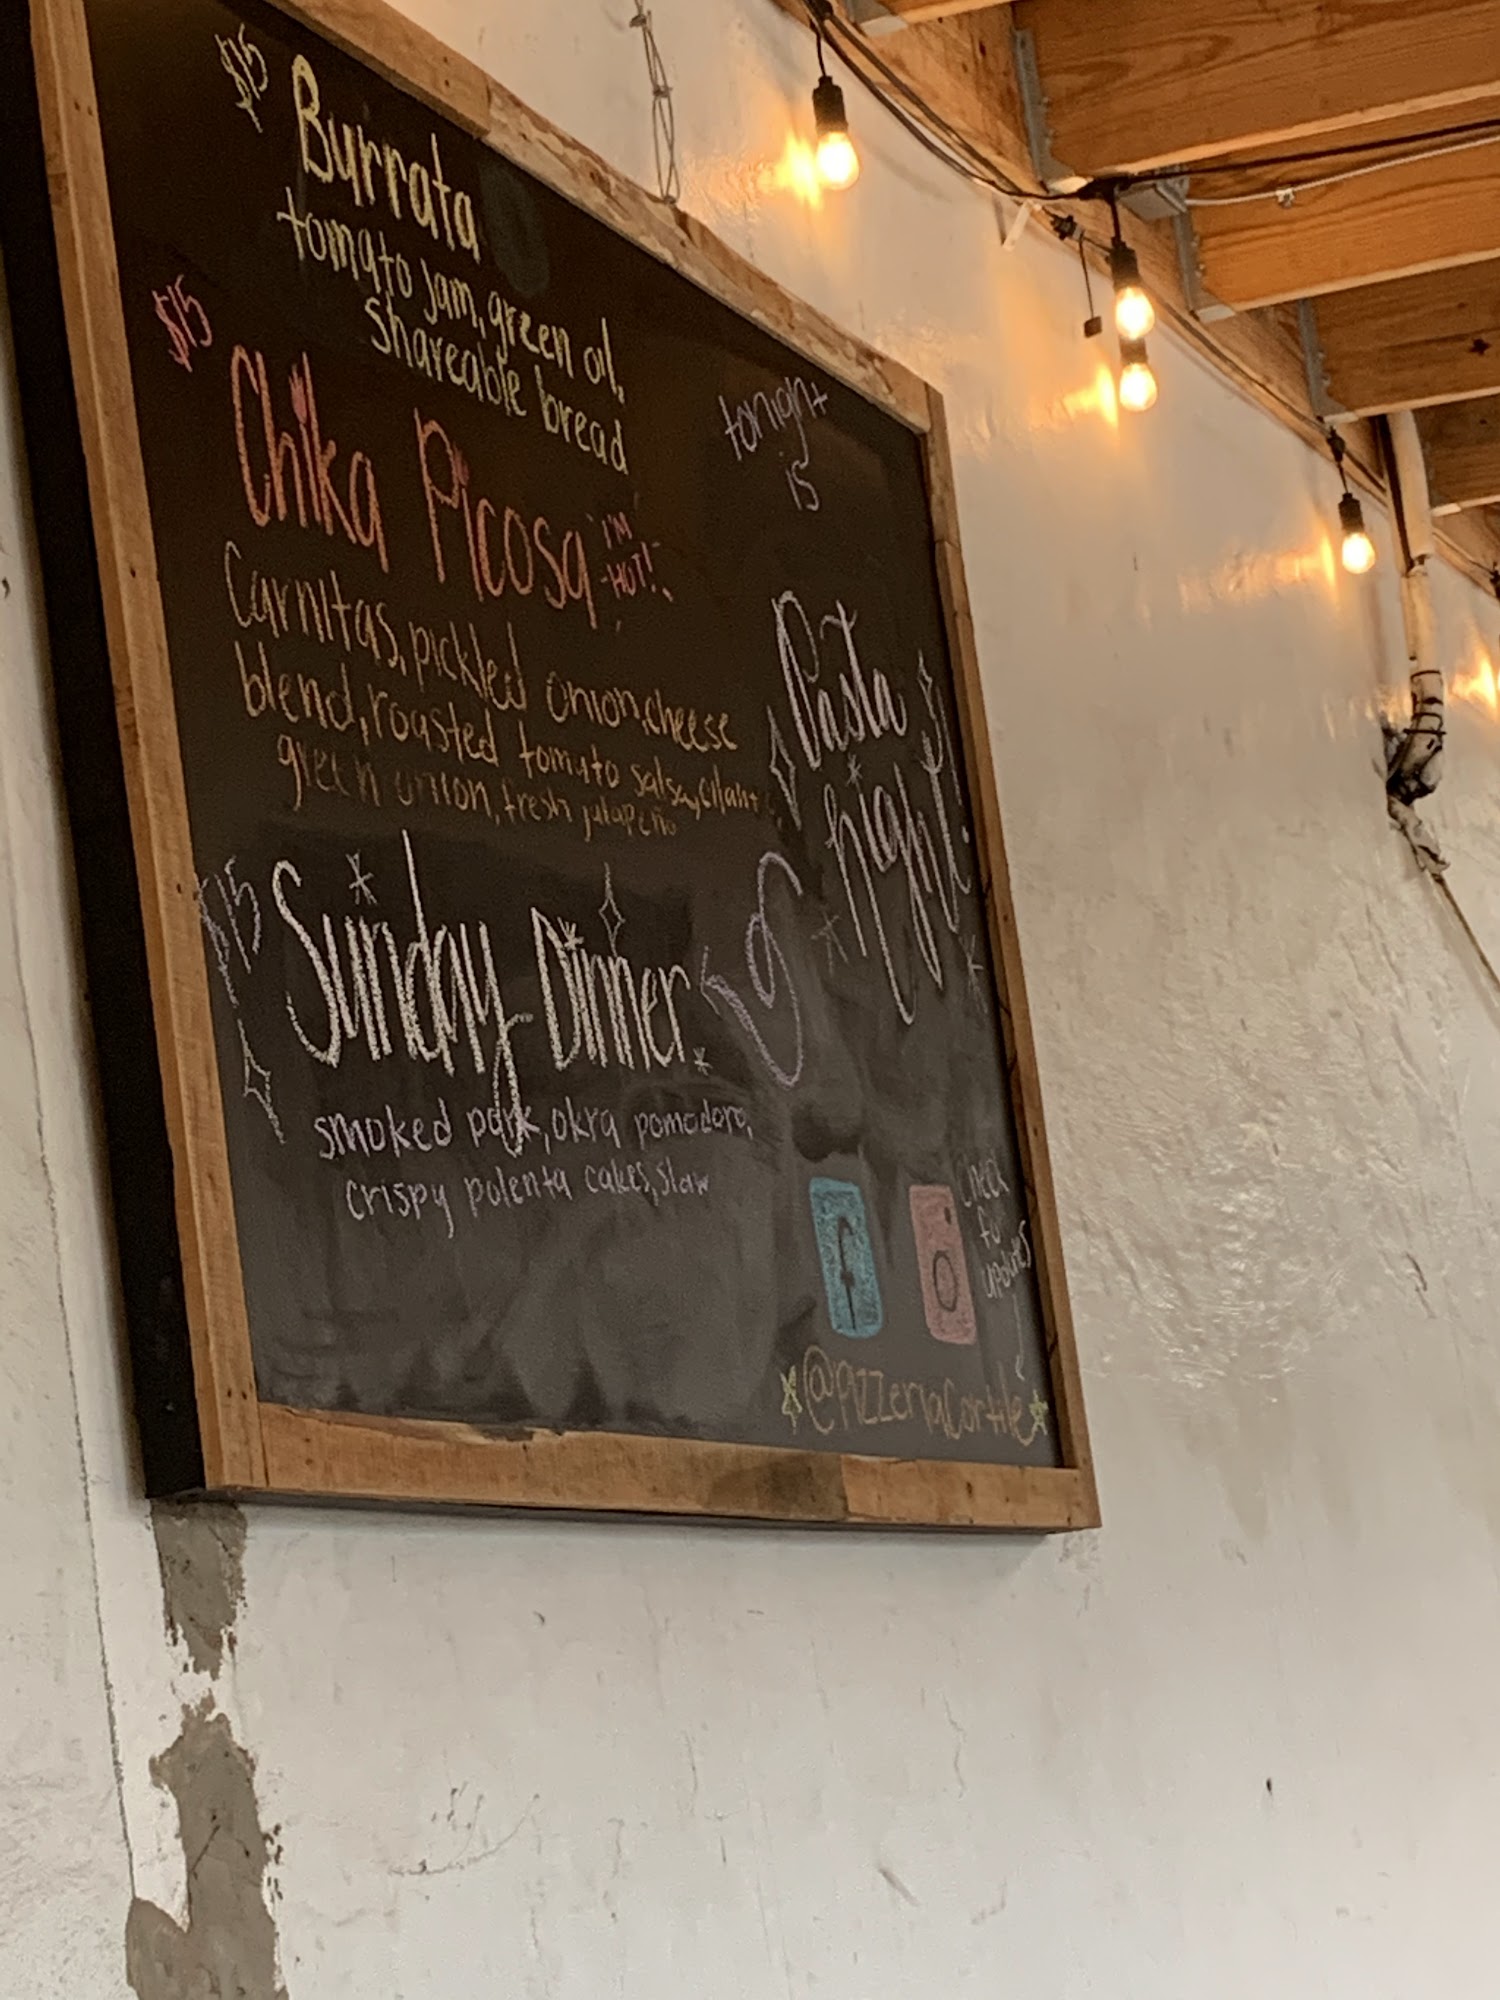 $15 Burrata
tomato jam, green oil,
shareable bread
$15
Chika Picosa
I'M
HOT!
Carnitas, pickled onion, cheese
blend, roasted tomato salsa, cilantro,
green onion, fresh jalapeño
$15 Sunday Dinner
smoked pork, okra pomodoro,
crispy polenta cakes, slaw
tonight
is
Pasta
night!
f
Check
for
updates
@PizzeriaCortile